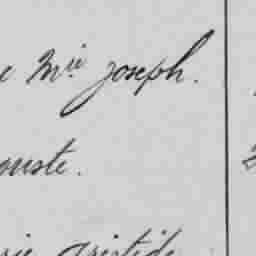 e Mie Joseph.
ouste.
rie Aristide